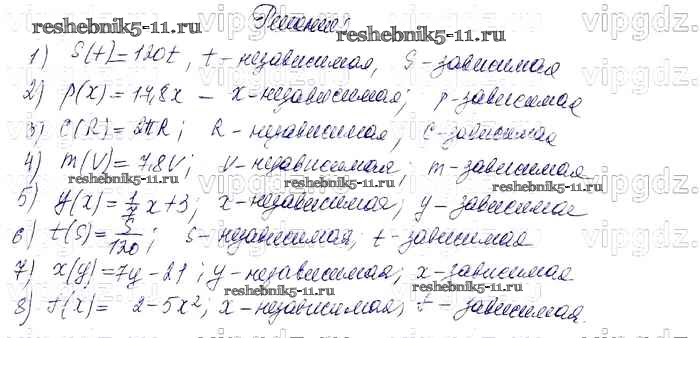 Решение:
reshebnik5-11.ru reshebnik5-11.ru
1) S(t)=120t, t - независимая, S - зависимая
2) p(x)=14,8x - x - независимая; p - зависимая
3) C(R)=2πR; R - независимая, C - зависимая
4) m(V)=7,8V; V - независимая; m - зависимая
reshebnik5-11.ru reshebnik5-11.ru reshebnik5-11.ru
5) y(x)=1/7 x+3; x - независимая; y - зависимая
6) t(S)=S/120; S - независимая, t - зависимая
7) x(y)=7y-21; y - независимая; x - зависимая
reshebnik5-11.ru
8) f(x)= 2-5x²; x - независимая; f - зависимая.
reshebnik5-11.ru
vipgdz.